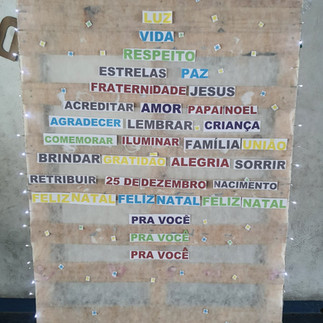 LUZ
VIDA
RESPEITO
ESTRELAS PAZ
FRATERNIDADE JESUS
ACREDITAR AMOR PAPAI NOEL
AGRADECER LEMBRAR CRIANÇA
COMEMORAR ILUMINAR FAMÍLIA UNIÃO
BRINDAR GRATIDÃO ALEGRIA SORRIR
RETRIBUIR 25 DE DEZEMBRO NACIMENTO
FELIZ NATAL FELIZ NATAL FELIZ NATAL
PRA VOCÊ
PRA VOCÊ
PRA VOCÊ